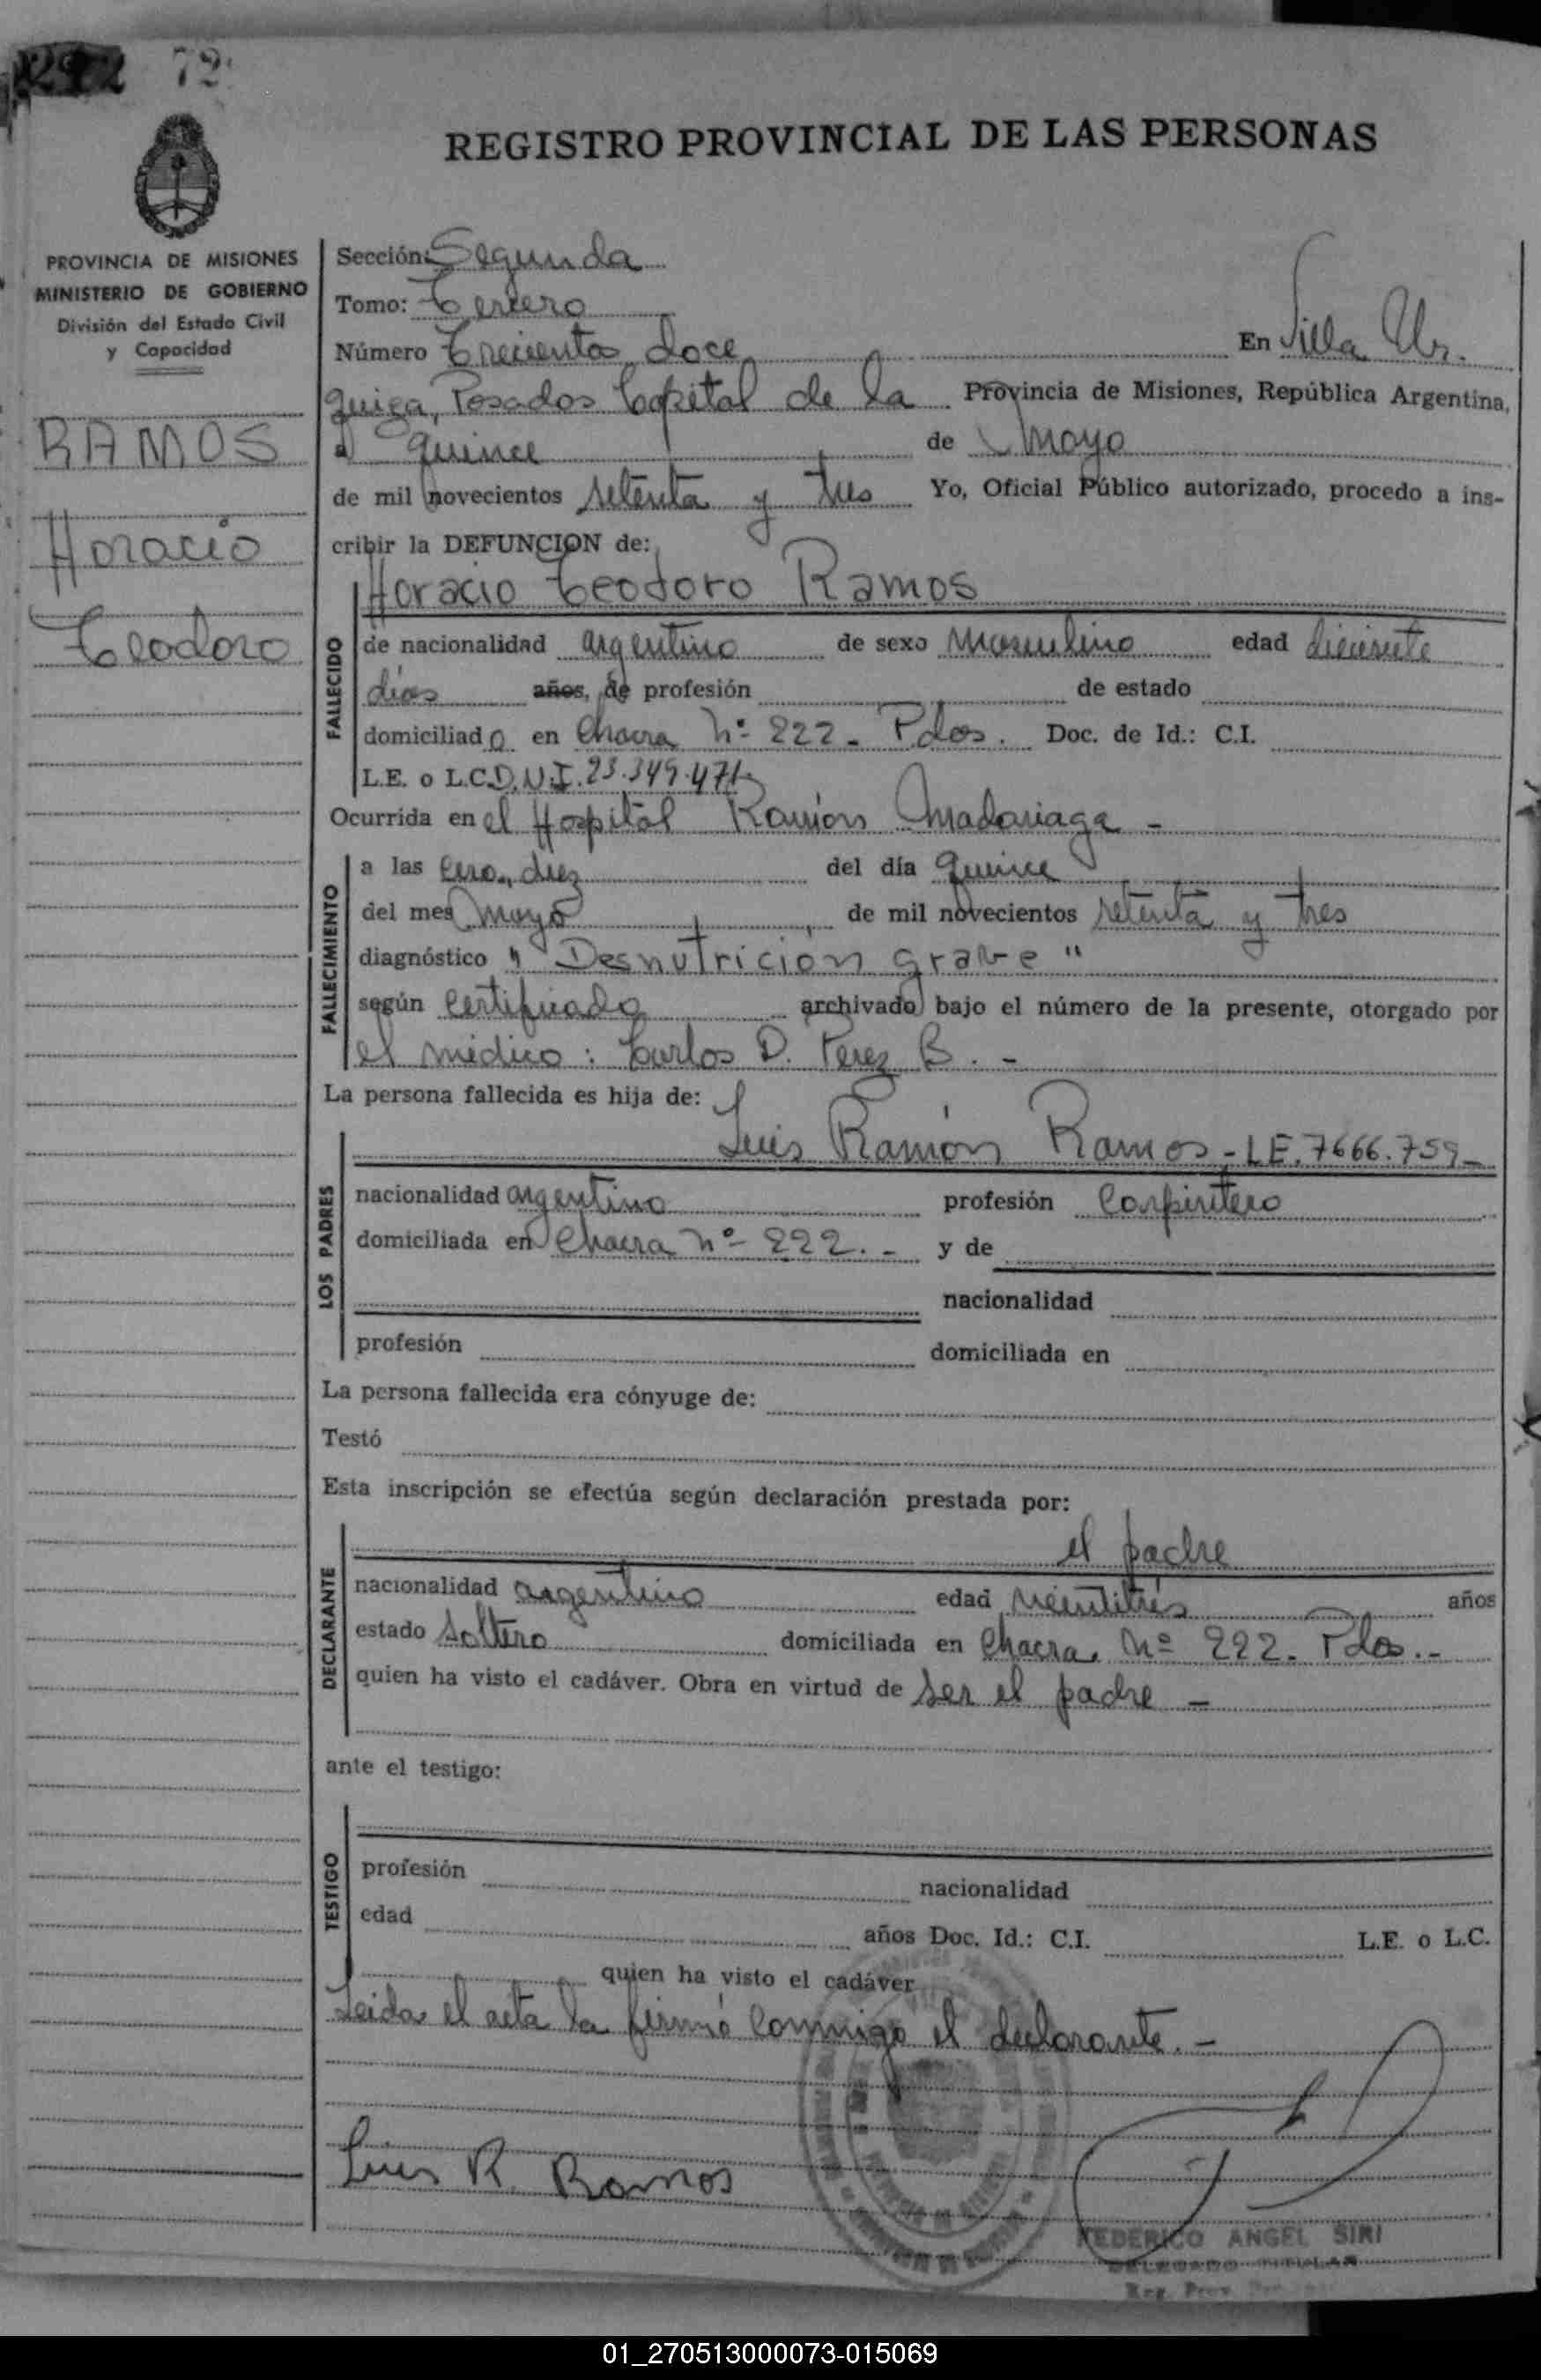 72
REGISTRO PROVINCIAL DE LAS PERSONAS
PROVINCIA DE MISIONES
MINISTERIO DE GOBIERNO
División del Estado Civil
y Capacidad
RAMOS
Horacio
Teodoro
Sección: Segunda
Tomo: Tercero
Número Trecientos doce En Villa Ur-
quiza, Posadas Capital de la Provincia de Misiones, República Argentina,
a quince de Mayo
de mil novecientos setenta y tres Yo, Oficial Público autorizado, procedo a ins-
cribir la DEFUNCION de:
Horacio Teodoro Ramos
FALLECIDO
de nacionalidad argentino de sexo Masculino edad diecisiete
días años, de profesión de estado
domiciliado en Chacra Nº 222 - Pdas. Doc. de Id.: C.I.
L.E. o L.C. D.N.I. 23.349.471
Ocurrida en el Hospital Ramón Madariaga -
FALLECIMIENTO
a las cero, diez del día quince
del mes Mayo de mil novecientos setenta y tres
diagnóstico " Desnutrición grave "
según certificado archivado bajo el número de la presente, otorgado por
el médico: Carlos D. Perez B. -
La persona fallecida es hija de:
LOS PADRES
Luis Ramón Ramos - LE. 7666.759 -
nacionalidad argentino profesión Carpintero
domiciliada en Chacra nº 222. - y de
nacionalidad
profesión domiciliada en
La persona fallecida era cónyuge de:
Testó
Esta inscripción se efectúa según declaración prestada por:
DECLARANTE
el padre
nacionalidad argentino edad veintitrés años
estado soltero domiciliada en Chacra Nº 222. Pdas. -
quien ha visto el cadáver. Obra en virtud de ser el padre -
ante el testigo:
TESTIGO
profesión nacionalidad
edad años Doc. Id.: C.I. L.E. o L.C.
quien ha visto el cadáver
Leida el acta la firmó conmigo el declarante. -
Luis R. Ramos
FEDERICO ANGEL SIRI
DELEGADO TITULAR
Reg. Prov.
01_270513000073-015069